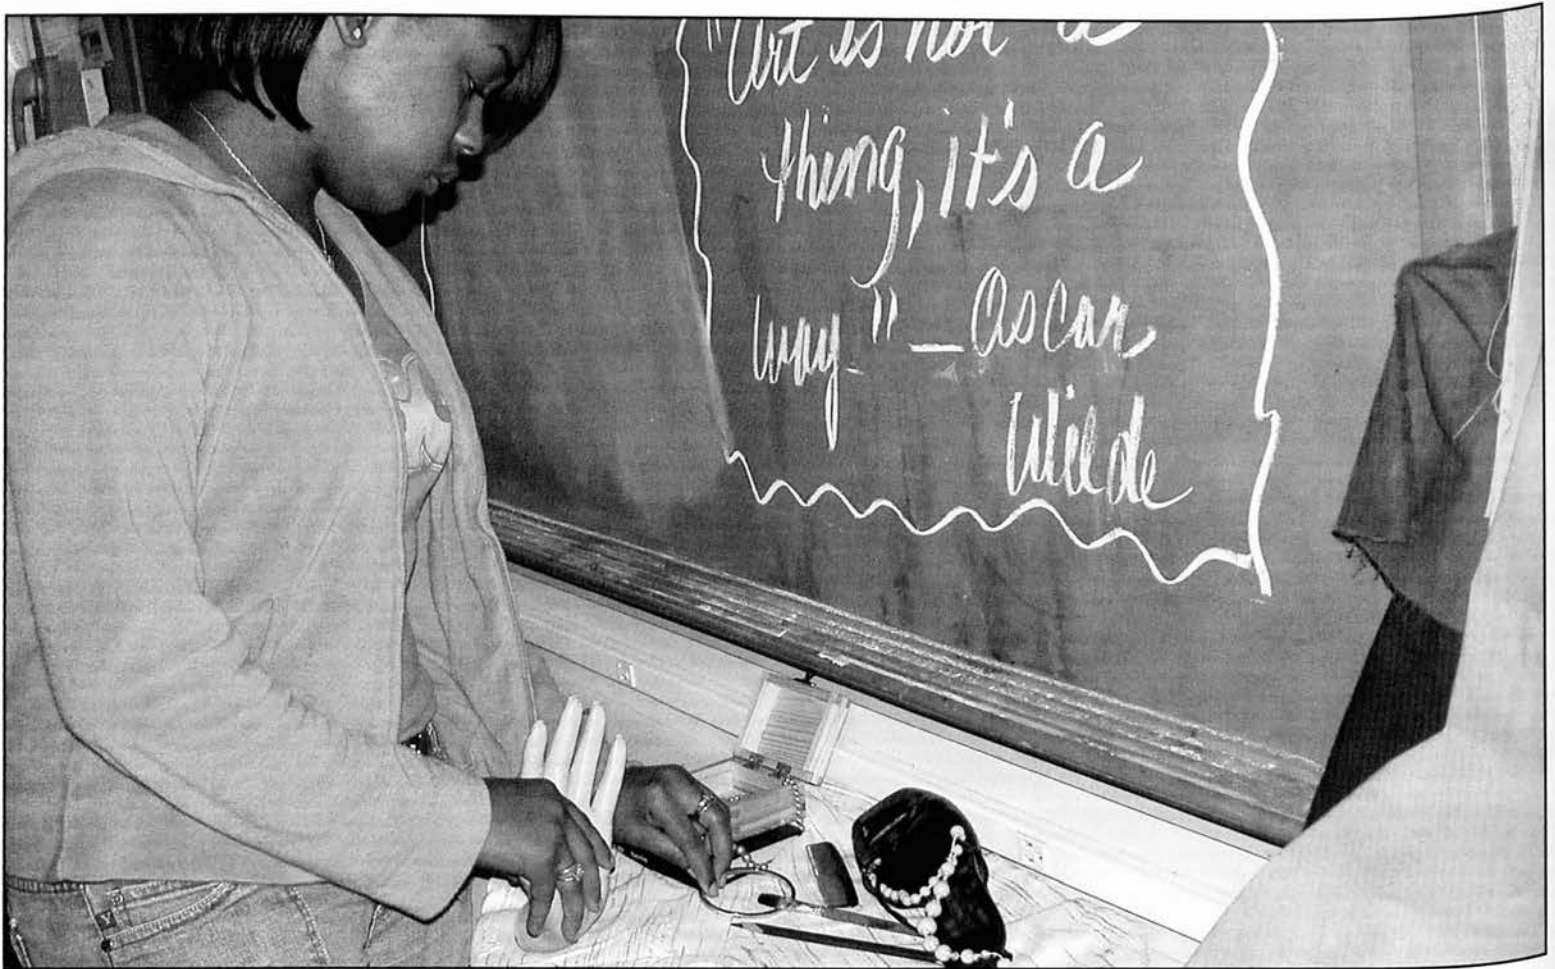 "Art is not a
thing, it's a
way." — Oscar
Wilde